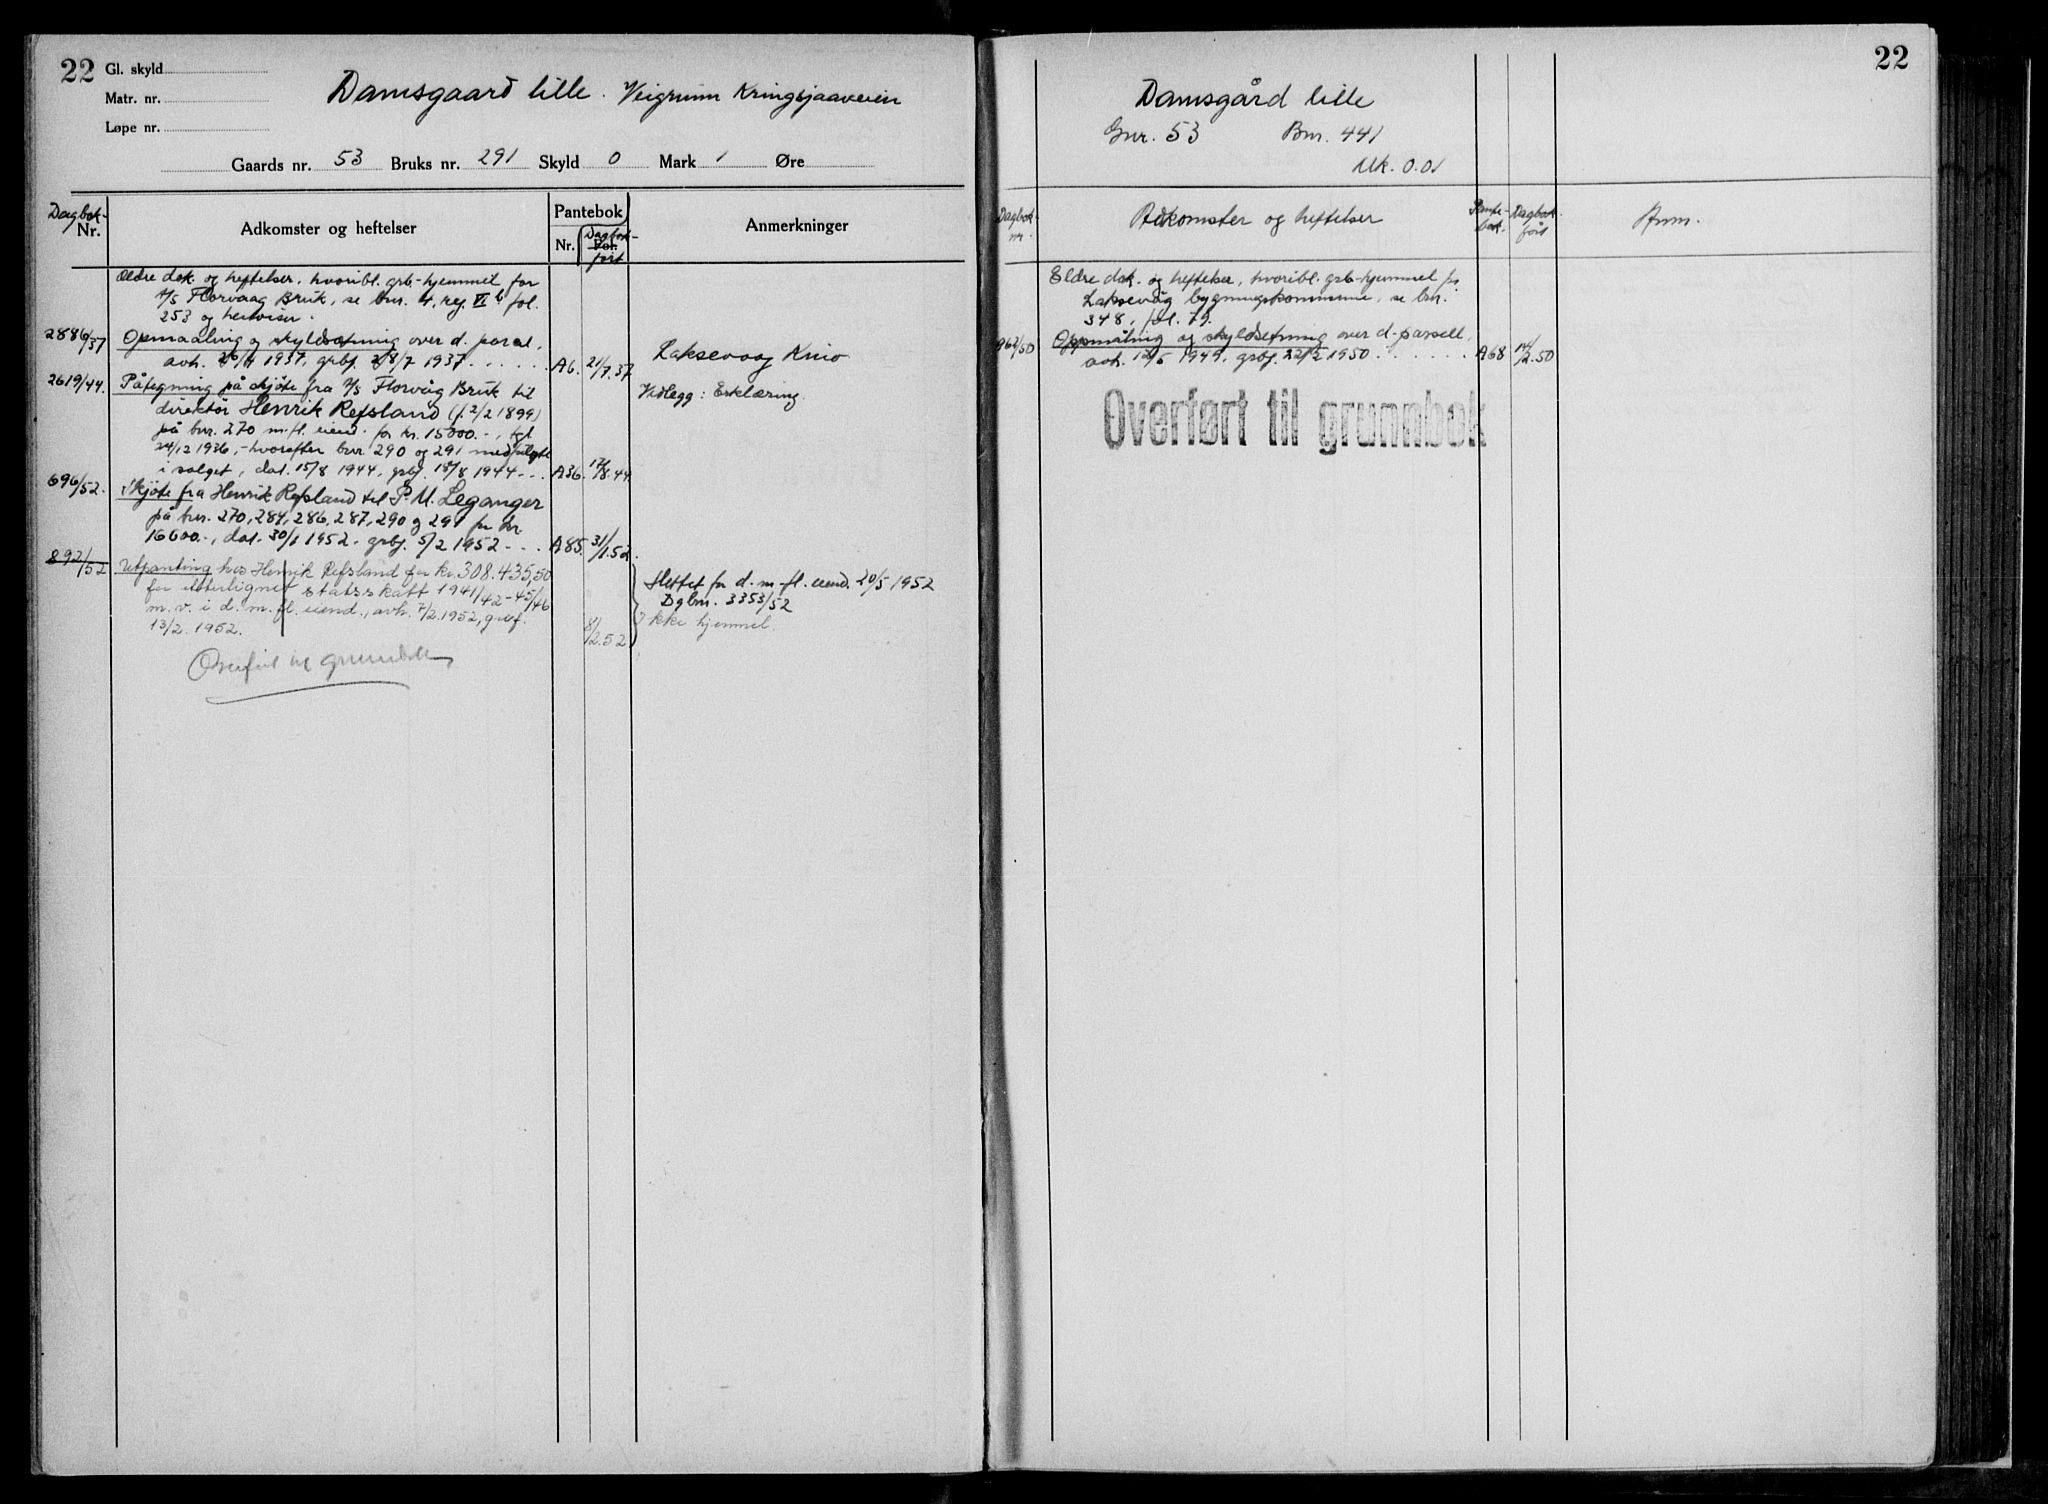 22
Gl. skyld
Matr. nr.
Løpe nr.
Damsgaard lille. Veigrunn Kringsjaaveien
Gaards nr. 53 Bruks nr. 291 Skyld 0 Mark 1 Øre
Dagbok-
Nr.
Adkomster og heftelser
Pantebok
Nr.
Dagbok-
Fol.
ført
Anmerkninger
Ældre dok. og heftelser, hvoribl. grb-hjemmel for
A/S Florvaag Bruk, se bnr. 4, reg. VI b fol.
253 og henviser.
2886/37
Opmaaling og skyldsætning over d. parcel,
avh. 26/4 1937, grbf. 28/7 1937 . . . . . . A6. 21/7.37
Laksevaag Kino
2619/44.
Påtegning på skjøte fra A/S Florvåg Bruk til
direktør Henrik Refsland (f. 2/2 1899)
på bnr. 270 m.fl. eiend. for kr. 15000.-, tgl.
24/12 1936, - hvorefter bnr. 290 og 291 medfulgte
i salget, dat. 15/8 1944, grbf. 18/8 1944 - . . A36. 17/8.44
Vedlegg: Erklæring.
696/52.
Skjøte fra Henrik Refsland til P. M. Leganger
på bnr. 270, 284, 286, 287, 290 og 291 for kr.
16000.-, dat. 30/1 1952. grbf. 5/2 1952 - . . A85. 31/1.52.
892/52
Utpanting hos Henrik Refsland for kr. 308.435,50
for etterlignet statsskatt 1941/42 - 45/46
m. v. i d. m. fl. eiend., avh. 7/2 1952, grbf.
13/2. 1952.
8/2.52
Slettet for d. m. fl. eiend. 20/5 1952
Dgbnr. 3353/52
Ikke hjemmel.
Overført til grunnbok
22
Damsgård lille
Gnr. 53 Bnr. 441
Mk. 0.01
Dagbok-
nr.
Adkomster og heftelser
Pante-
bok.
Dagbok
ført
Anm.
Eldre dok. og heftelser, hvoribl. grb-hjemmel for
Laksevåg bygningskommune, se bnr.
348, fol. 79.
962/50
Oppmåling og skyldsetning over d. parsell,
avh. 12/5 1949, grbf. 22/2 1950 . . . . . . . A68 14/2.50
Overført til grunnbok